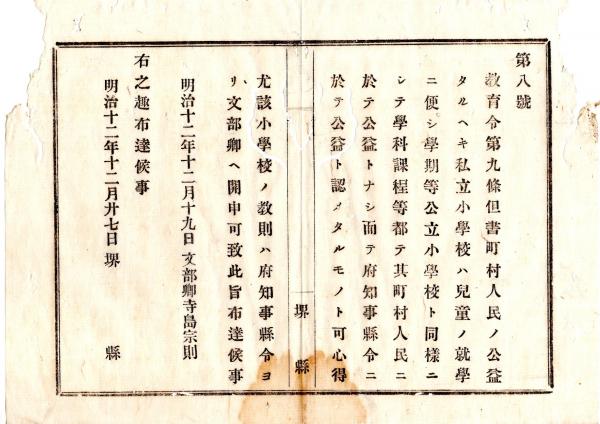 第八號
教育令第九條但書町村人民ノ公益
タルヘキ私立小學校ハ兒童ノ就學
ニ便シ學期等公立小學校ト同樣ニ
シテ學科課程等都テ其町村人民ニ
於テ公益トナシ而テ府知事縣令ニ
於テ公益ト認メタルモノト可心得
堺縣
尤該小學校ノ教則ハ府知事縣令ヨ
リ文部卿ヘ開申可致此旨布達候事
明治十二年十二月十九日 文部卿寺島宗則
右之趣布達候事
明治十二年十二月廿七日 堺縣